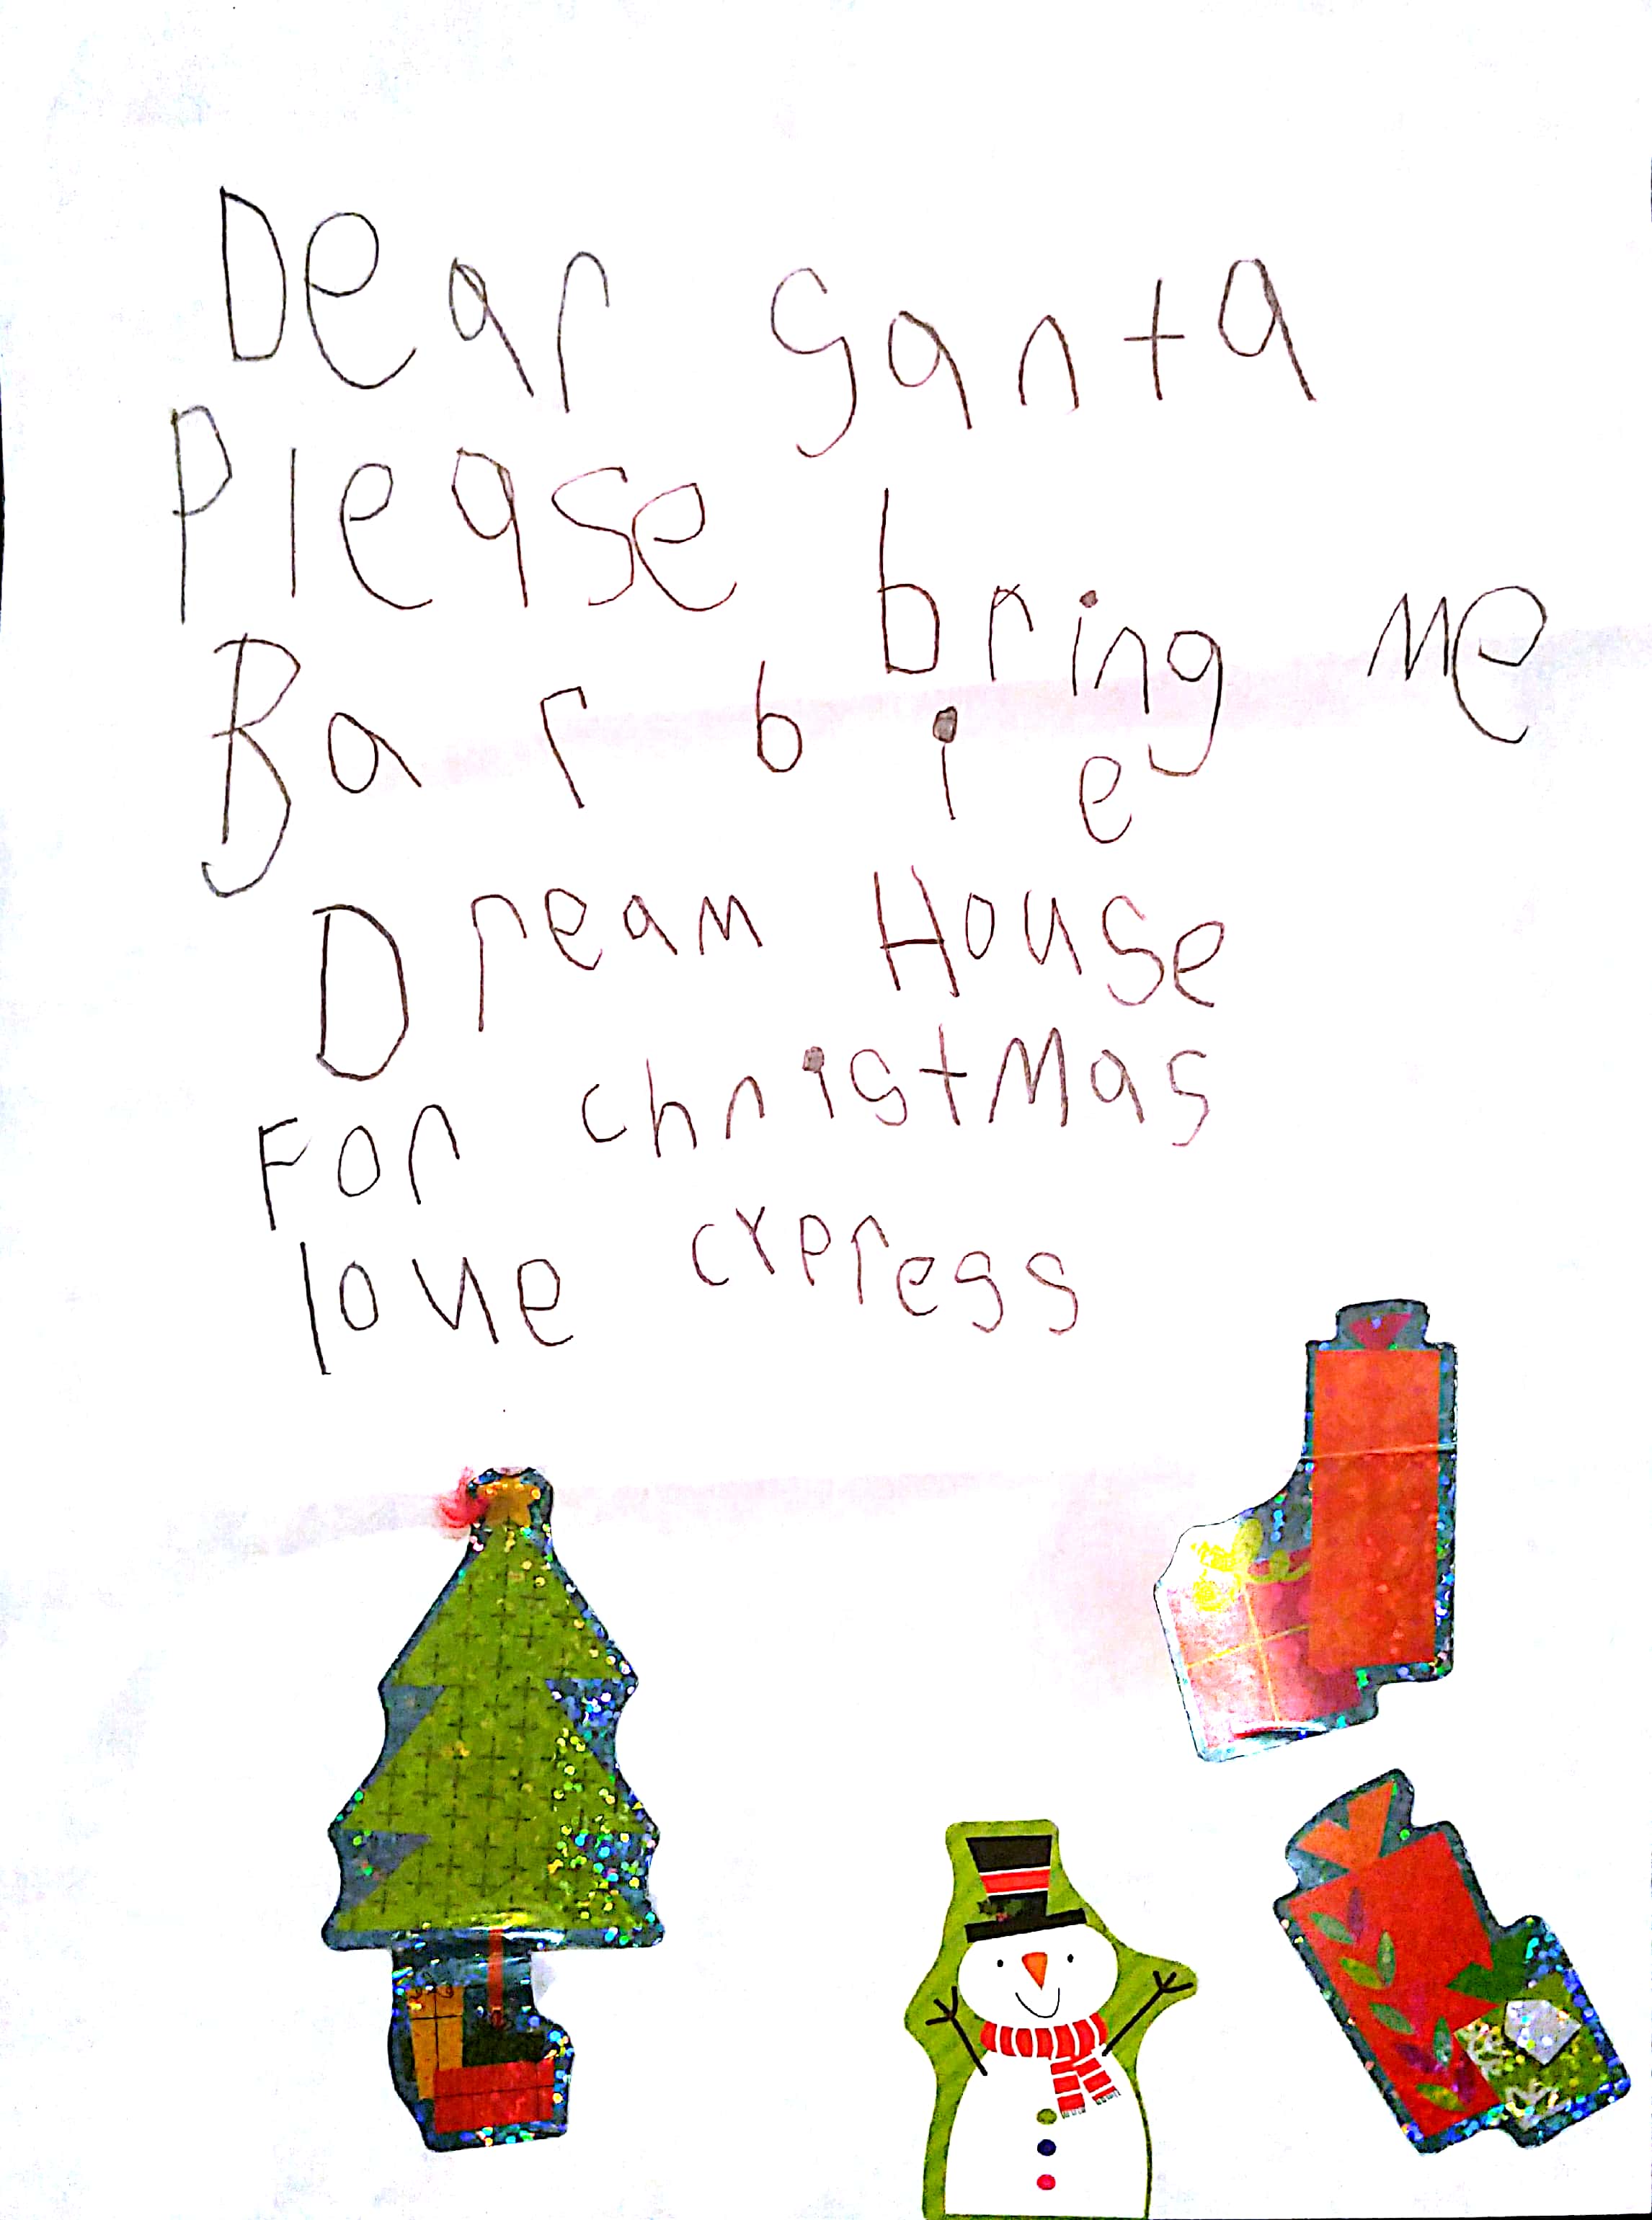 Dear Santa
Please bring me
Barbie
Dream House
For christmas
love cypress